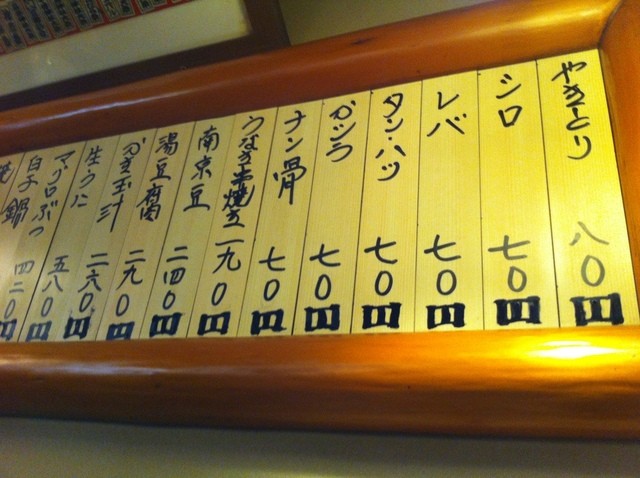 やきとり 八〇円
シロ 七〇円
レバ 七〇円
タン・ハツ 七〇円
カシラ 七〇円
ナン骨 七〇円
うなぎ串焼き 一九〇円
南京豆 二四〇円
湯豆腐 二九〇円
かき玉汁 二六〇円
生うに 五八〇円
マグロぶつ 四二〇円
白子鍋
焼